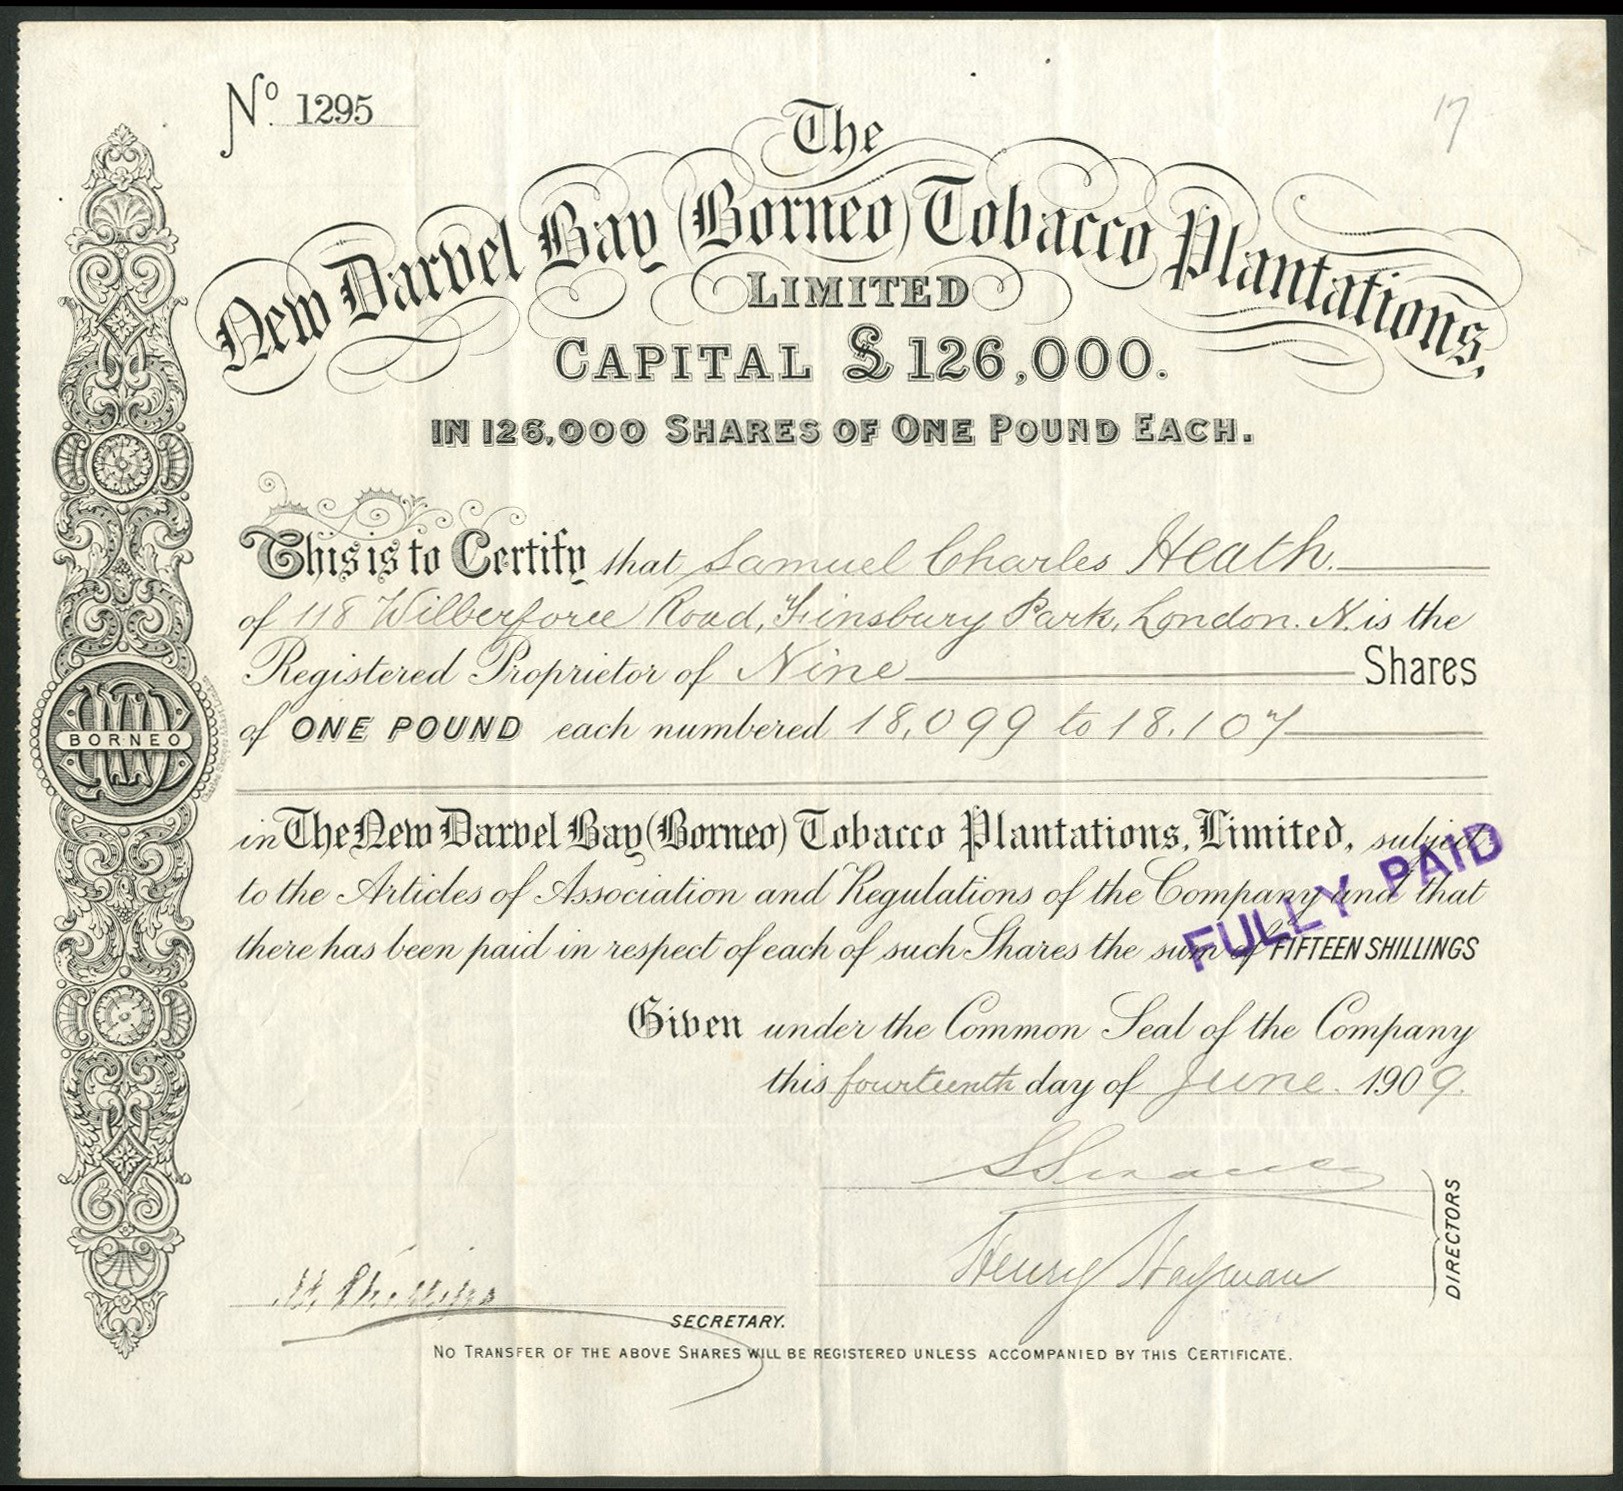 No. 1295
17
The
New Darvel Bay (Borneo) Tobacco Plantations,
LIMITED
CAPITAL £126,000.
IN 126,000 SHARES OF ONE POUND EACH.
This is to Certify that Samuel Charles Heath.
of 118 Wilberforce Road, Finsbury Park, London. N. is the
Registered Proprietor of Nine Shares
of ONE POUND each numbered 18,099 to 18,107
BORNEO
in The New Darvel Bay (Borneo) Tobacco Plantations, Limited, subject
to the Articles of Association and Regulations of the Company and that
there has been paid in respect of each of such Shares the sum of FIFTEEN SHILLINGS
FULLY PAID
Given under the Common Seal of the Company
this fourteenth day of June. 1909.
Henry Hayman
DIRECTORS
H. Phillips
SECRETARY.
NO TRANSFER OF THE ABOVE SHARES WILL BE REGISTERED UNLESS ACCOMPANIED BY THIS CERTIFICATE.